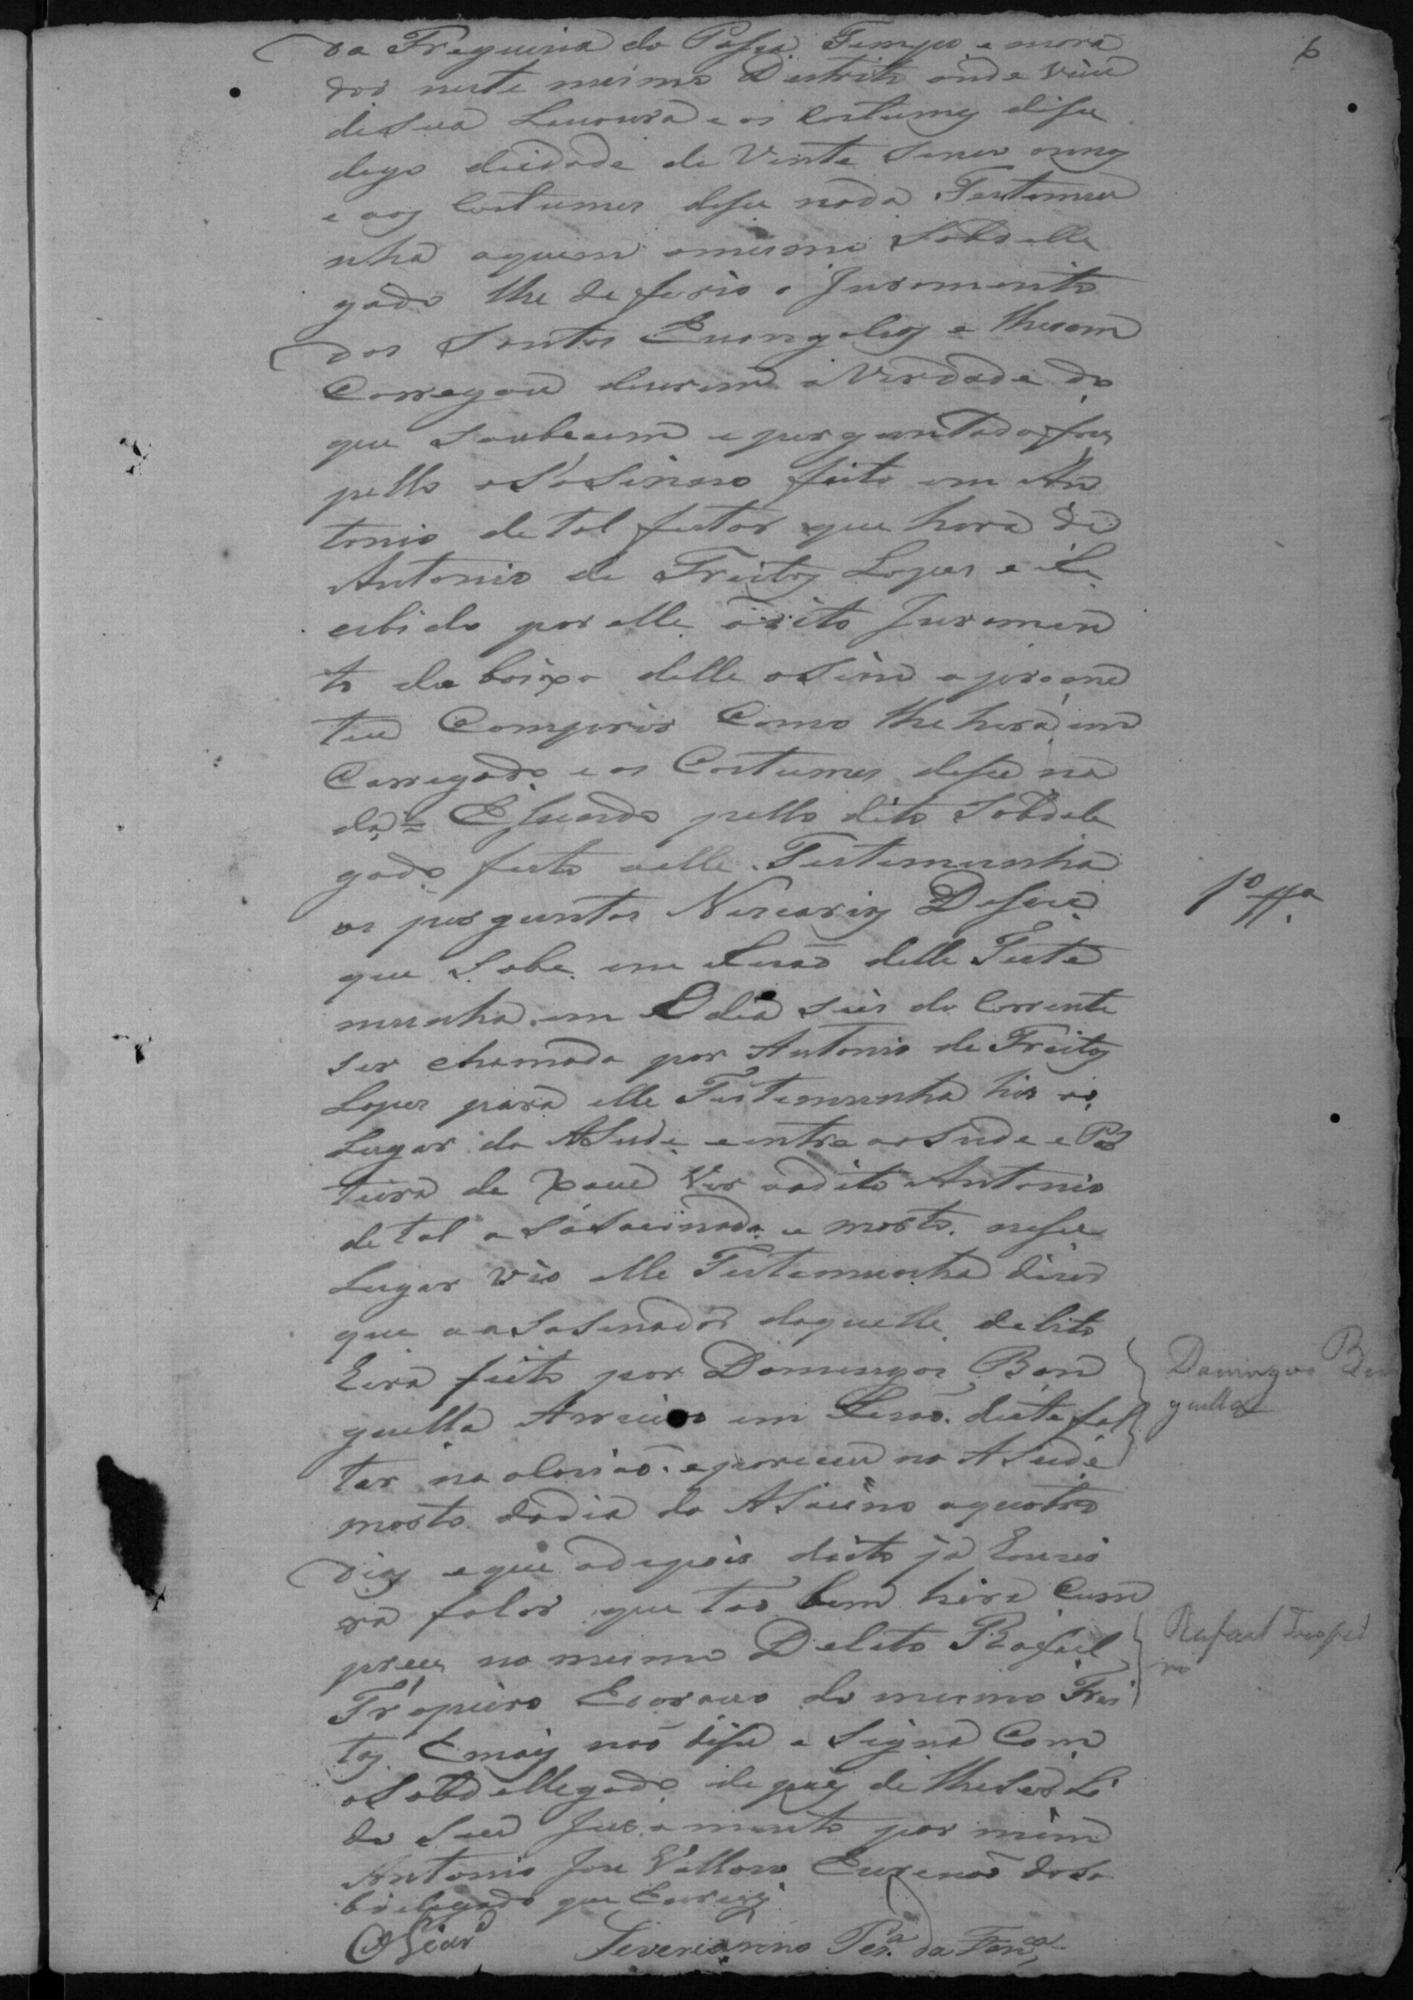 6
da Freguesia do Passa Tempo e mora
dor neste mesmo Destrito onde vive
de sua Lavoura e os Costumes disse
digo deidade de Vinte Sinco annos
e aos Costumes disse nada Testemu
nha aquem o mesmo Sobdelle
gado lhe deferio o Juramento
dos Santos Evangelhos e lhe em
Carregou a Verdade do
que Soubecem e perguntado
pello aSaSinaro feito em An
tonio de tal feitor que hera de
Antonio de Freitas Lopes e Re
cebido por elle o dito Juramen
to de baixo delle aSim o prome
teu Comprir Como lhe hera em
Carregado e os Costumes disse na
da = E Sendo pello dito Sobdele
gado feito a elle Testemunha
as perguntas Necearias Disse
1ª Ta
que Sabe em rezão delle Teste
munha em O dia Seis do Corrente
ser chamado por Antonio de Freitas
Lopes para elle Testemunha hir ao
Lugar do ASude e entre o aSude e
de ver o dito Antonio
de tal aSaSacinado e morto nesse
Lugar vio elle Testemunha dizer
que o aSaSinador daquelle delito
Eira feito por Domingos Ben
Domingos Ben
guella Arrieiro em Rezão deste fal
guella
tar na oCazião e pareceu no ASude
morto dodia do ASacino a quatro
dias e que adepois disto ja
ra falar que tão bem hira Cum
prece no mesmo Delito Rafael
Rafael Tropei
ro
Tropeiro Escravo do mesmo Frei
tas E mais não disse e Signa Com
o Sobdellegado depois de lhe Ser Li
do Seu Juramento por mim
Antonio Jose Escrivão do So
bdelegado que Escrevy
Severianno Per.ª da Fon.ca